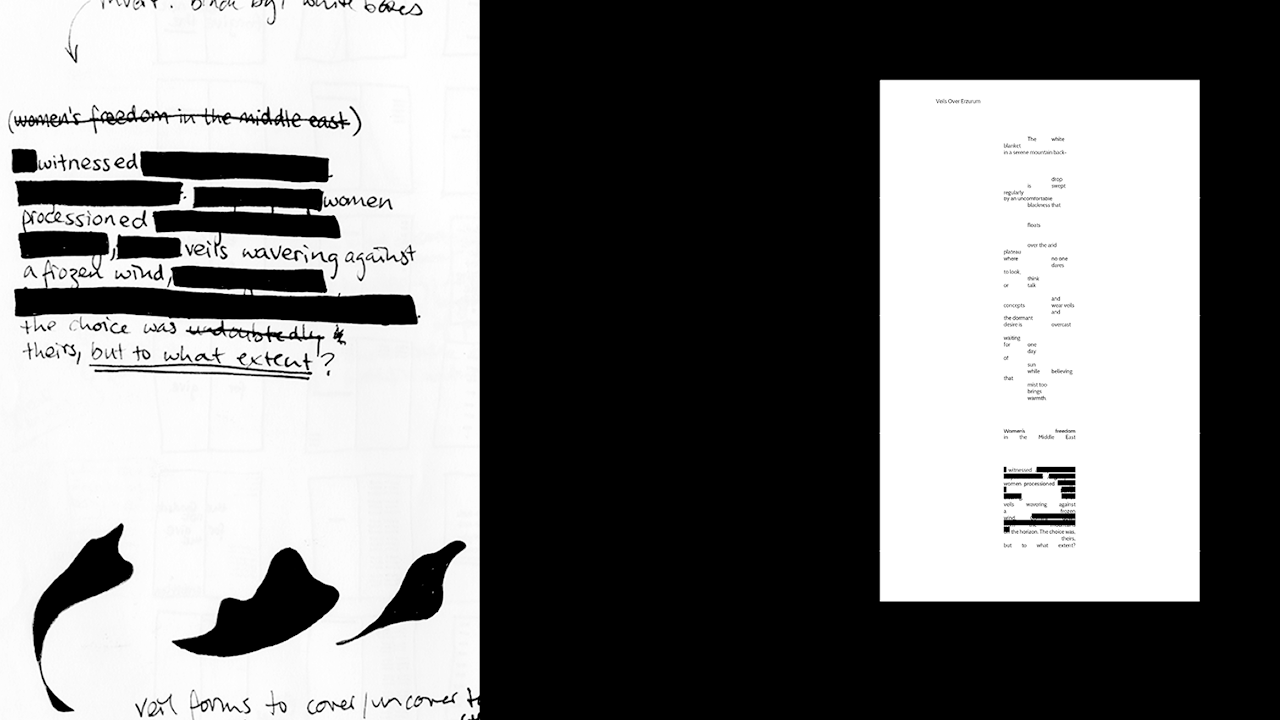 invert: black bg/ white boxes
(women's freedom in the middle east)
witnessed
. women
processioned
, veils wavering against
a frozen wind,
the choice was undoubtedly
theirs, but to what extent?
veil forms to cover/uncover
Veils Over Erzurum
The white
blanket
in a serene mountain back-
drop
is swept
regularly
by an uncomfortable
blackness that
floats
over the and
plateau
where no one
dares
to look,
think
or talk
and
concepts wear veils
and
the dormant
desire is overcast
waiting
for one
day
of
sun
while believing
that
mist too
brings
warmth
Women's freedom
in the Middle East
witnessed
women processioned
veils wavering against
a frozen
wind
on the horizon. The choice was,
theirs,
but to what extent?